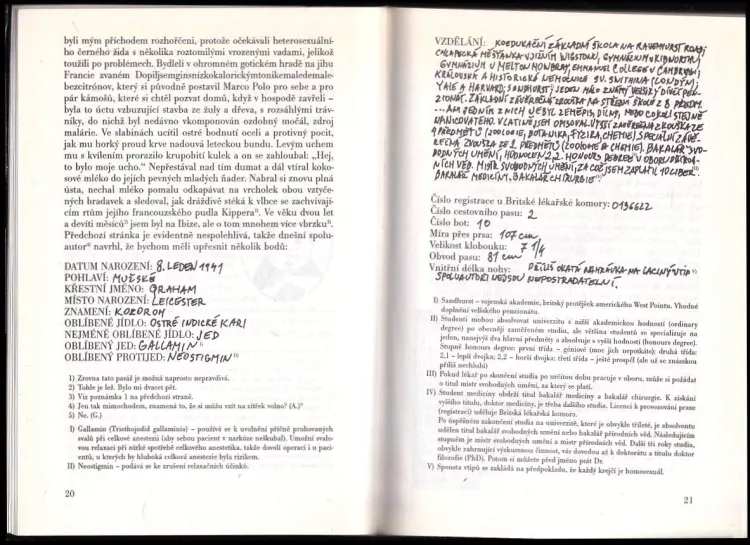 byli mým příchodem rozhořčeni, protože očekávali heterosexuální-
ho černého žida s několika roztomilými vrozenými vadami, jelikož
toužili po problémech. Bydleli v ohromném gotickém hradě na jihu
Francie zvaném Dopiljsemginsnízkokalorickýmtonikemaledemale-
bezcitrónov, který si původně postavil Marco Polo pro sebe a pro
pár kámošů, které si chtěl pozvat domů, když v hospodě zavřeli –
byla to úctu vzbuzující stavba ze žuly a dřeva, s rozsáhlými tráv-
níky, do nichž byl nedávno vkomponován ozdobný močál, zdroj
malárie. Ve slabinách ucítil ostré bodnutí oceli a protivný pocit,
jak mu horký proud krve nadouvá leteckou bundu. Levým uchem
mu s kvílením prorazilo krupobití kulek a on se zahloubal: „Hej,
to bylo moje ucho.“ Nepřestával nad tím dumat a dál vtíral koko-
sové mléko do jejích pevných mladých ňader. Nabral si znovu plná
ústa, nechal mléko pomalu odkapávat na vrcholek obou vztyče-
ných bradavek a sledoval, jak dráždivě stéká k vlhce se zachvívají-
cím rtům jejího francouzského pudla Kippera²⁾. Ve věku dvou let
a devíti měsíců³⁾ jsem byl na Ibize, ale o tom mnohem více vbrzku⁴⁾.
Předchozí stránka je evidentně nespolehlivá, takže dnešní spolu-
autor⁵⁾ navrhl, že bychom měli upřesnit několik bodů:
DATUM NAROZENÍ: 8. LEDEN 1941
POHLAVÍ: MUŽSKÉ
KŘESTNÍ JMÉNO: GRAHAM
MÍSTO NAROZENÍ: LEICESTER
ZNAMENÍ: KOZOROH
OBLÍBENÉ JÍDLO: OSTRÉ INDICKÉ KARI
NEJMÉNĚ OBLÍBENÉ JÍDLO: JED
OBLÍBENÝ JED: GALLAMIN I)
OBLÍBENÝ PROTIJED: NEOSTIGMIN II)
1) Zrovna tato pasáž je možná naprosto nepravdivá.
2) Tohle je lež. Bylo mi dvacet pět.
3) Viz poznámka 1 na předchozí straně.
4) Jen tak mimochodem, znamená to, že si můžu vzít na zítřek volno? (A.)⁵⁾
5) Ne. (G.)
I) Gallamin (Triethojodid gallaminia) – používá se k uvolnění příčně pruhovaných
svalů při celkové anestezii (aby sebou pacient v narkóze neškubal). Umožní svalo-
vou relaxaci při nízké spotřebě celkového anestetika, takže dovolí operaci i u paci-
entů, u kterých by hluboká celková anestezie byla rizikem.
II) Neostigmin – podává se ke zrušení relaxačních účinků.
20
VZDĚLÁNÍ: KOEDUKAČNÍ ZÁKLADNÍ ŠKOLA NA RAVENHURST ROAD;
CHLAPECKÁ MĚŠŤANKA V JIŽNÍM WIGSTONU; GYMNÁZIUM KIBWORTH;
GYMNÁZIUM V MELTON MOWBRAY; EMMANUEL COLLEGE V CAMBRIDGI;
KRÁLOVSKÁ A HISTORICKÁ NEMOCNICE SV. SWITHINA (LONDÝN);
YALE A HARVARD; SANDHURST I) JEDEN MÁLO ZNÁMÝ VELŠSKÝ DÍVČÍ PEN-
ZIONÁT. ZÁKLADNÍ ZÁVĚREČNÁ ZKOUŠKA NA STŘEDNÍ ŠKOLE Z 8 PŘEDM.
...ANI JEDNÍM Z NICH NEBYL ZEMĚPIS, DÍLNY, NEBO COKOLI STEJNĚ
NANICOVATÉHO. V LATINĚ JSEM OPSAL. VYŠŠÍ ZÁVĚREČNÁ ZKOUŠKA ZE
4 PŘEDMĚTŮ (ZOOLOGIE, BOTANIKA, FYZIKA, CHEMIE). SPECIÁLNÍ ZÁVĚ-
REČNÁ ZKOUŠKA ZE 2 PŘEDMĚTŮ (ZOOLOGIE & CHEMIE). BAKALÁŘ SVO-
BODNÝCH UMĚNÍ, HODNOCEN 2,2. HONOURS DEGREE II) V OBORU PŘÍROD-
NÍCH VĚD. MISTR SVOBODNÝCH UMĚNÍ, ZA COŽ JSEM ZAPLATIL 10 LIBER. III)
BAKALÁŘ MEDICÍNY, BAKALÁŘ CHIRURGIE IV)
Číslo registrace u Britské lékařské komory: 0196622
Číslo cestovního pasu: 2
Číslo bot: 10
Míra přes prsa: 107 cm
Velikost klobouku: 7 1/4
Obvod pasu: 81 cm
Vnitřní délka nohy: PŘÍLIŠ OKATÁ NAHRÁVKA NA LACINÝ VTIP V)
SPOLUAUTOŘI NEJSOU NEPOSTRADATELNÍ.
I) Sandhurst – vojenská akademie, britský protějšek amerického West Pointu. Vhodné
doplnění velšského penzionátu.
II) Studenti mohou absolvovat univerzitu s nižší akademickou hodností (ordinary
degree) po obecněji zaměřeném studiu, ale většina studentů se specializuje na
jeden, nanejvýš dva hlavní předměty a absolvuje s vyšší hodností (honours degree).
Stupně honours degree: první třída – géniové (moc jich nepotkáte); druhá třída:
2,1 – lepší dvojka; 2,2 – horší dvojka; třetí třída – ještě prospěl (ale už se známkou
příliš nechlubí)
III) Pokud lékař po skončení studia po určitou dobu pracuje v oboru, může si požádat
o titul mistr svobodných umění, za který se platí.
IV) Student medicíny obdrží titul bakalář medicíny a bakalář chirurgie. K získání
vyššího titulu, doktor medicíny, je třeba dalšího studia. Licenci k provozování praxe
(registraci) uděluje Britská lékařská komora.
Po úspěšném zakončení studia na univerzitě, které je obvykle tříleté, je absolventu
udělen titul bakalář svobodných umění nebo bakalář přírodních věd. Následujícím
stupněm je mistr svobodných umění a mistr přírodních věd. Další tři roky studia,
obvykle zahrnující výzkumnou činnost, vás dovedou až k doktorátu a titulu doktor
filozofie (PhD). Potom si můžete před jméno psát Dr.
V) Spousta vtipů se zakládá na předpokladu, že každý krejčí je homosexuál.
21